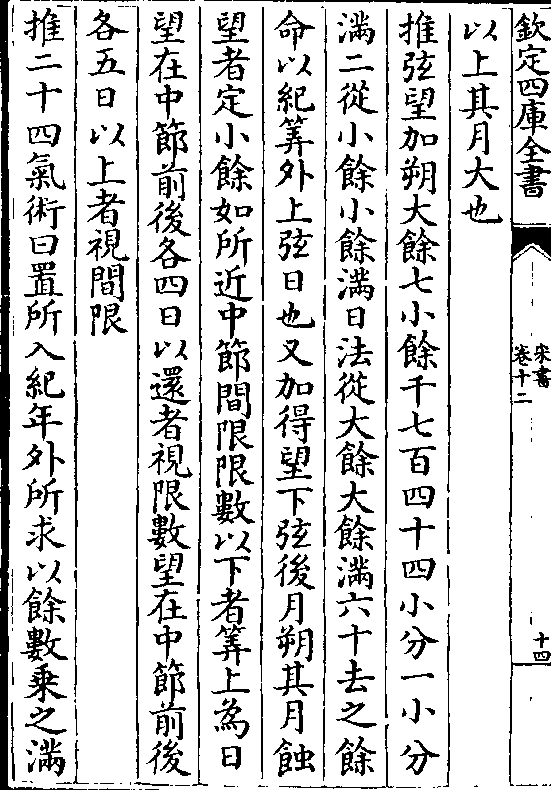 欽定四庫全書
宋書
卷十二
十四
以上其月大也
推弦望加朔大餘七小餘千七百四十四小分一小分
滿二從小餘小餘滿日法從大餘大餘滿六十去之餘
命以紀筭外上弦日也又加得望下弦後月朔其月蝕
望者定小餘如所近中節間限限數以下者筭上為日
望在中節前後各四日以還者視限數望在中節前後
各五日以上者視間限
推二十四氣術曰置所入紀年外所求以餘數乗之滿